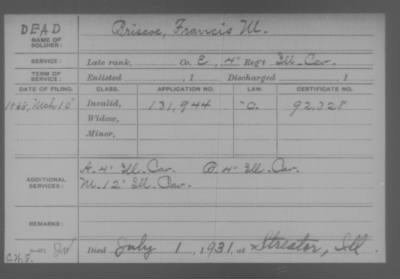 DEAD
NAME OF SOLDIER:
Briscoe, Francis M.
SERVICE: Late rank, Co. E, 4" Reg't Ill. Cav.
TERM OF SERVICE: Enlisted , 1 Discharged , 1
DATE OF FILING. CLASS. APPLICATION NO. LAW. CERTIFICATE NO.
1868, Mch 10 Invalid, 131,944 92,328
Widow,
Minor,
ADDITIONAL SERVICES:
A. 4" Ill. Cav. B. 4" Ill. Cav.
M. 12" Ill. Cav.
REMARKS:
Died July 1, 1931, at Streator, Ill.